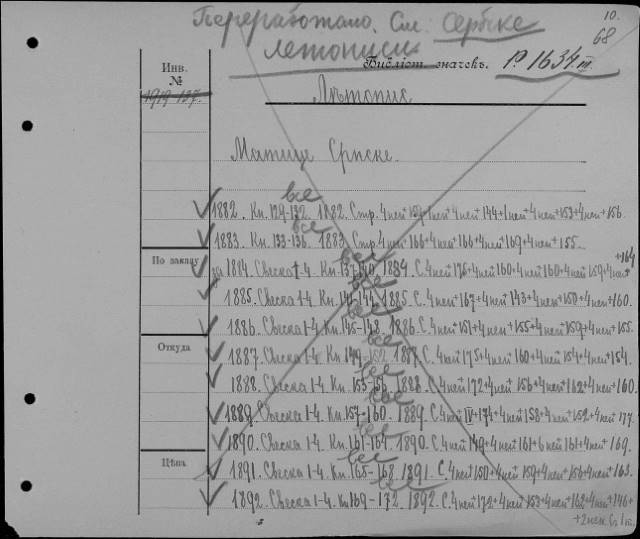 10.
Переработано. См. Сербске
68
летописи
Инв.
№
Библіот. значекъ. Р. 1634 III.
1919-137.
Лѣтопис
Матице Српске.
все
1882. Кн. 129-132. 1882. Стр. 4 неп + 159 + 1 неп + 4 неп 144 + 1 неп + 4 неп + 153 + 4 неп + 156.
все
1883. Кн. 133-136. 1883. Стр. 4 неп + 166 + 4 неп + 166 + 4 неп 169 + 4 неп + 155.
все
+164
По заказу
за 1884. Свеска 1-4. Кн. 137-140. 1884. С. 4 неп 175 + 4 неп 160 + 4 неп 160 + 4 неп 159 + 4 неп
все
1885. Свеска 1-4. Кн. 141-144. 1885. С. 4 неп + 167 + 4 неп 143 + 4 неп + 150 + 4 неп + 160.
все
1886. Свеска 1-4. Кн. 145-148. 1886. С. 4 неп + 151 + 4 неп + 155 + 4 неп 159 + 4 неп + 155.
Откуда
все
1887. Свеска 1-4. Кн. 149-152. 1887. С. 4 неп 175 + 4 неп 160 + 4 неп 154 + 4 неп + 154.
все
1888. Свеска 1-4. Кн. 153-156. 1888. С. 4 неп 172 + 4 неп 156 + 4 неп + 162 + 4 неп + 160.
все
1889. Свеска 1-4. Кн. 157-160. 1889. С. 4 неп IV + 174 + 4 неп 158 + 4 неп + 152 + 4 неп 177.
все
1890. Свеска 1-4. Кн. 161-164. 1890. С. 4 неп 149 + 4 неп + 161 + 6 неп 161 + 4 неп + 169.
Цѣна
все
1891. Свеска 1-4. Кн. 165-168. 1891. С. 4 неп 150 + 4 неп 159 + 4 неп + 156 + 4 неп + 163.
все
1892. Свеска 1-4. Кн. 169-172. 1892. С. 4 неп 172 + 4 неп + 153 + 4 неп + 162 + 4 неп + 146 +
+ 2 неп.